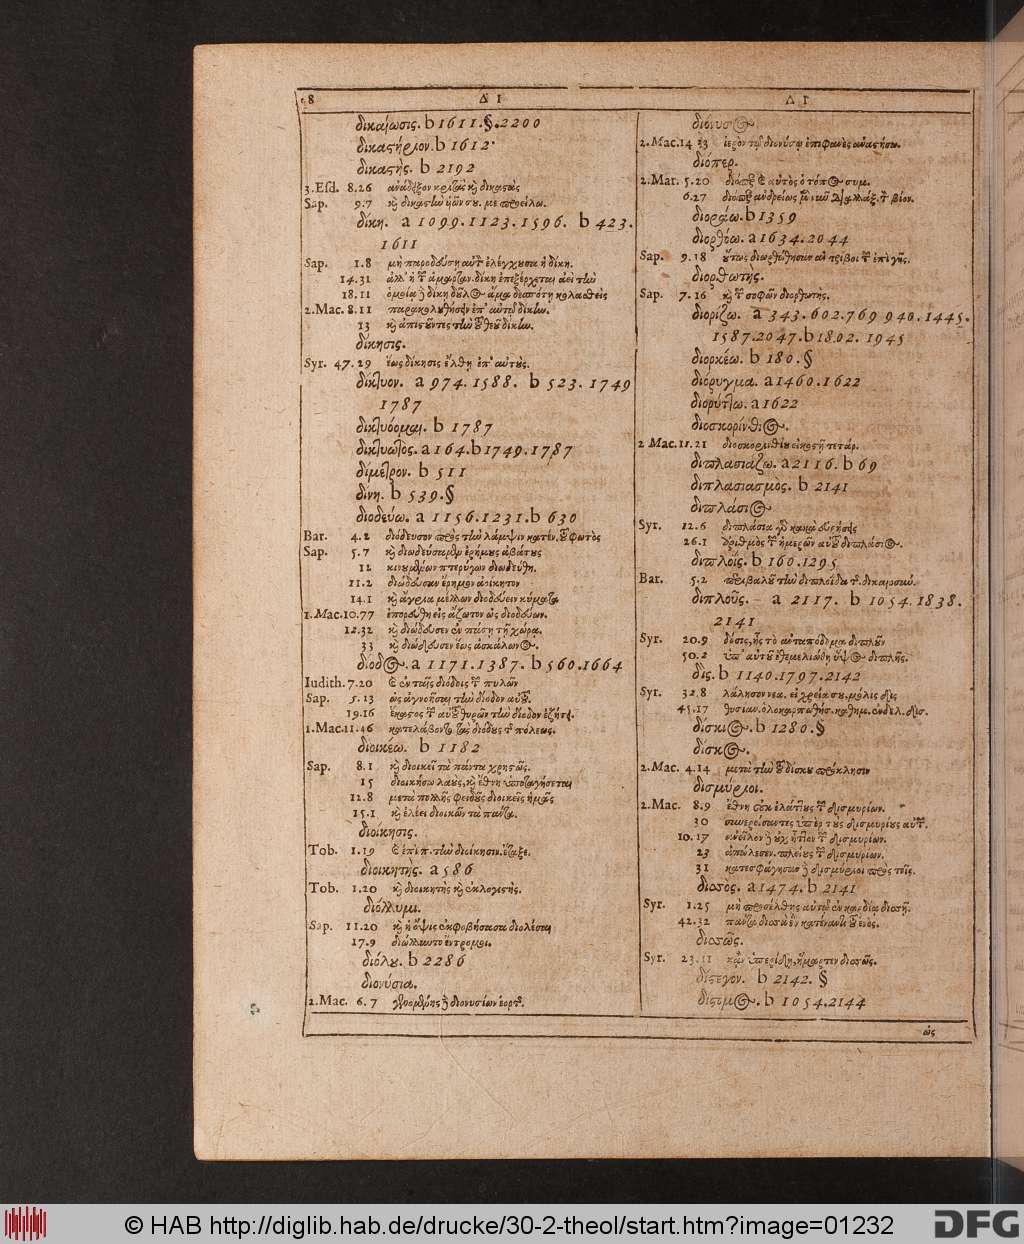 8 Δ Ι Δ Ι
δικαίωσις. b 1611.§.2200
δικαςήριον. b 1612
δικαςὴς. b 2192
3. Esd. 8.26 ἀνάδειξον κριτὰς κὶ δικαςὰς
Sap. 9.7 κὶ δικαςὴν
δίκη. a 1099.1123.1596. b 423.
1611
Sap. 1.8 μὴ παροδεύση αὐτὸν ἐλέγχουσα ἡ δίκη.
14.31 ἀλλ' ἡ τῶν ἁμαρταν. δίκη ἐπεξέρχεται ἀεὶ τὴν
18.11 ὁμοία δὲ δίκη δοῦλος ἅμα δεσπότη κολασθεὶς
2. Mac. 8.11 παρακολουθήσειν ἐπ' αὐτῷ δίκην.
13 κὶ ἀπιςοῦντες τὴν τοῦ θεοῦ δίκην.
δίκησις.
Syr. 47.29 ἕως δίκησις ἔλθη ἐπ' αὐτούς.
δίκτυον. a 974.1588. b 523. 1749
1787
δικτυόομαι. b 1787
δικτυωτὸς. a 164. b 1749.1787
δίμετρον. b 511
δίνη. b 539.§
διοδεύω. a 1156.1231. b 630
Bar. 4.2 διόδευσον πρὸς τὴν λάμψιν κατέν. τοῦ φωτὸς
Sap. 5.7 κὶ διωδεύσαμεν ἐρήμους ἀβάτους
12 κινουμένων πτερύγων διωδεύθη.
11.2 διώδευσαν ἔρημον ἀοίκητον
14.1 κὶ ἄγρια μέλλων διοδεύειν κύματα
1. Mac. 10.77 ἐπορεύθη εἰς ἄζωτον ὡς διοδεύων.
12.32 κὶ διώδευσεν ἐν πάση τῆ χώρα.
33 κὶ διώδευσεν ἕως ἀσκάλωνος.
δίοδος. a 1171.1387. b 560.1664
Iudith. 7.20 ἐν ταῖς διόδοις τῶν πυλῶν
Sap. 5.13 ὡς ἀγνοῆσαι τὴν δίοδον αὐτοῦ.
19.16 ἕκαςος τῶν αὐτοῦ θυρῶν τὴν δίοδον ἐζήτει.
1. Mac. 11.46 κατελάβοντο τὰς διόδους τῆς πόλεως.
διοικέω. b 1182
Sap. 8.1 κὶ διοικεῖ τὰ πάντα χρηςῶς.
15 διοικήσω λαοὺς, κὶ ἔθνη ὑποταγήσεται
12.8 μετὰ πολλῆς φειδοῦς διοικεῖς ἡμᾶς
15.1 κὶ ἐλέει διοικῶν τὰ πάντα.
διοίκησις.
Tob. 1.19 τὴν διοίκησιν.
διοικητὴς. a 586
Tob. 1.20 κὶ διοικητὴς κὶ ἐκλογιςής.
διόλλυμι.
Sap. 11.20 κὶ ἡ ὄψις ἐκφοβήσασα διολέσαι
17.9 διώλλυντο ἔντρομοι.
διόλου. b 2286
διονύσια.
2. Mac. 6.7 γενομένης δὲ διονυσίων ἑορτῆς.
διόνυσος
2. Mac. 14 33 ἱερὸν τῷ διονύσῳ ἐπιφανὲς ἀναςήσω.
διόπερ.
2. Mac. 5.20 διόπερ αὐτὸς ὁ τόπος συμ.
6.27 διόπερ ἀνδρείως μὲν νῦν διαλλάξ. τὸν βίον.
διοράω. b 1359
διορθόω. a 1634.2044
Sap. 9.18 οὕτως διωρθώθησαν αἱ τρίβοι τῶν ἐπὶ γῆς.
διορθωτὴς.
Sap. 7.16 κὶ τῶν σοφῶν διορθωτής.
διορίζω. a 343.602.769 940.1445.
1587.2047. b 1802. 1945
διορκέω. b 180.§
διόρυγμα. a 1460.1622
διορύττω. a 1622
διοσκορίνθιος.
2 Mac. 11.21 διοσκορινθίου εἰκοςῆ τετάρ.
διπλασιάζω. a 2116. b 69
διπλασιασμὸς. b 2141
διπλάσιος
Syr. 12.6 διπλάσια γὰρ κακὰ εὑρήσεις
26.1 ἀριθμὸς τῶν ἡμερῶν αὐτοῦ διπλάσιος.
διπλοΐς. b 160.1295
Bar. 5.2 περιβαλοῦ τὴν διπλοΐδα τῆς δικαιοσύν.
διπλοῦς. a 2117. b 1054.1838.
2141
Syr. 20.9 δόσις, ἧς τὸ ἀνταπόδομα διπλοῦν
50.2 ὑπ' αὐτοῦ ἐθεμελιώθη ὕψος διπλῆς.
δὶς. b 1140.1797.2142
Syr. 32.8 λάλησον νεα. εἰ χρεία σου, μόλις δὶς
45.17 θυσίαι. ὁλοκαρπωθήσ. καθημ. ἐνδελ. δὶς.
δίσκιος. b 1280.§
δίσκος.
2. Mac. 4.14 μετὰ τὴν τοῦ δίσκου πρόκλησιν
δισμύριοι.
2. Mac. 8.9 ἔθνη οὐκ ἐλάττους τῶν δισμυρίων.
30 συνερείσαντες ὑπὲρ τοὺς δισμυρίους αὐτῶν.
10.17 ἀνεῖλον δὲ οὐχ ἧττον τῶν δισμυρίων.
23 ἀπώλεσεν. πλείους τῶν δισμυρίων.
31 κατεσφάγησαν δὲ δισμύριοι πρὸς τοῖς.
δισσὸς. a 1474. b 2141
Syr. 1.25 μὴ προσέλθης αὐτῷ ἐν καρδία δισσῆ.
42.32 πάντα δισσὰ ἓν κατέναντι τοῦ ἑνός.
δισσῶς.
Syr. 23.11 κἂν ὑπερίδη, ἥμαρτεν δισσῶς.
δίςεγον. b 2142. §
δίςομος. b 1054.2144
ὡς
© HAB http://diglib.hab.de/drucke/30-2-theol/start.htm?image=01232
DFG